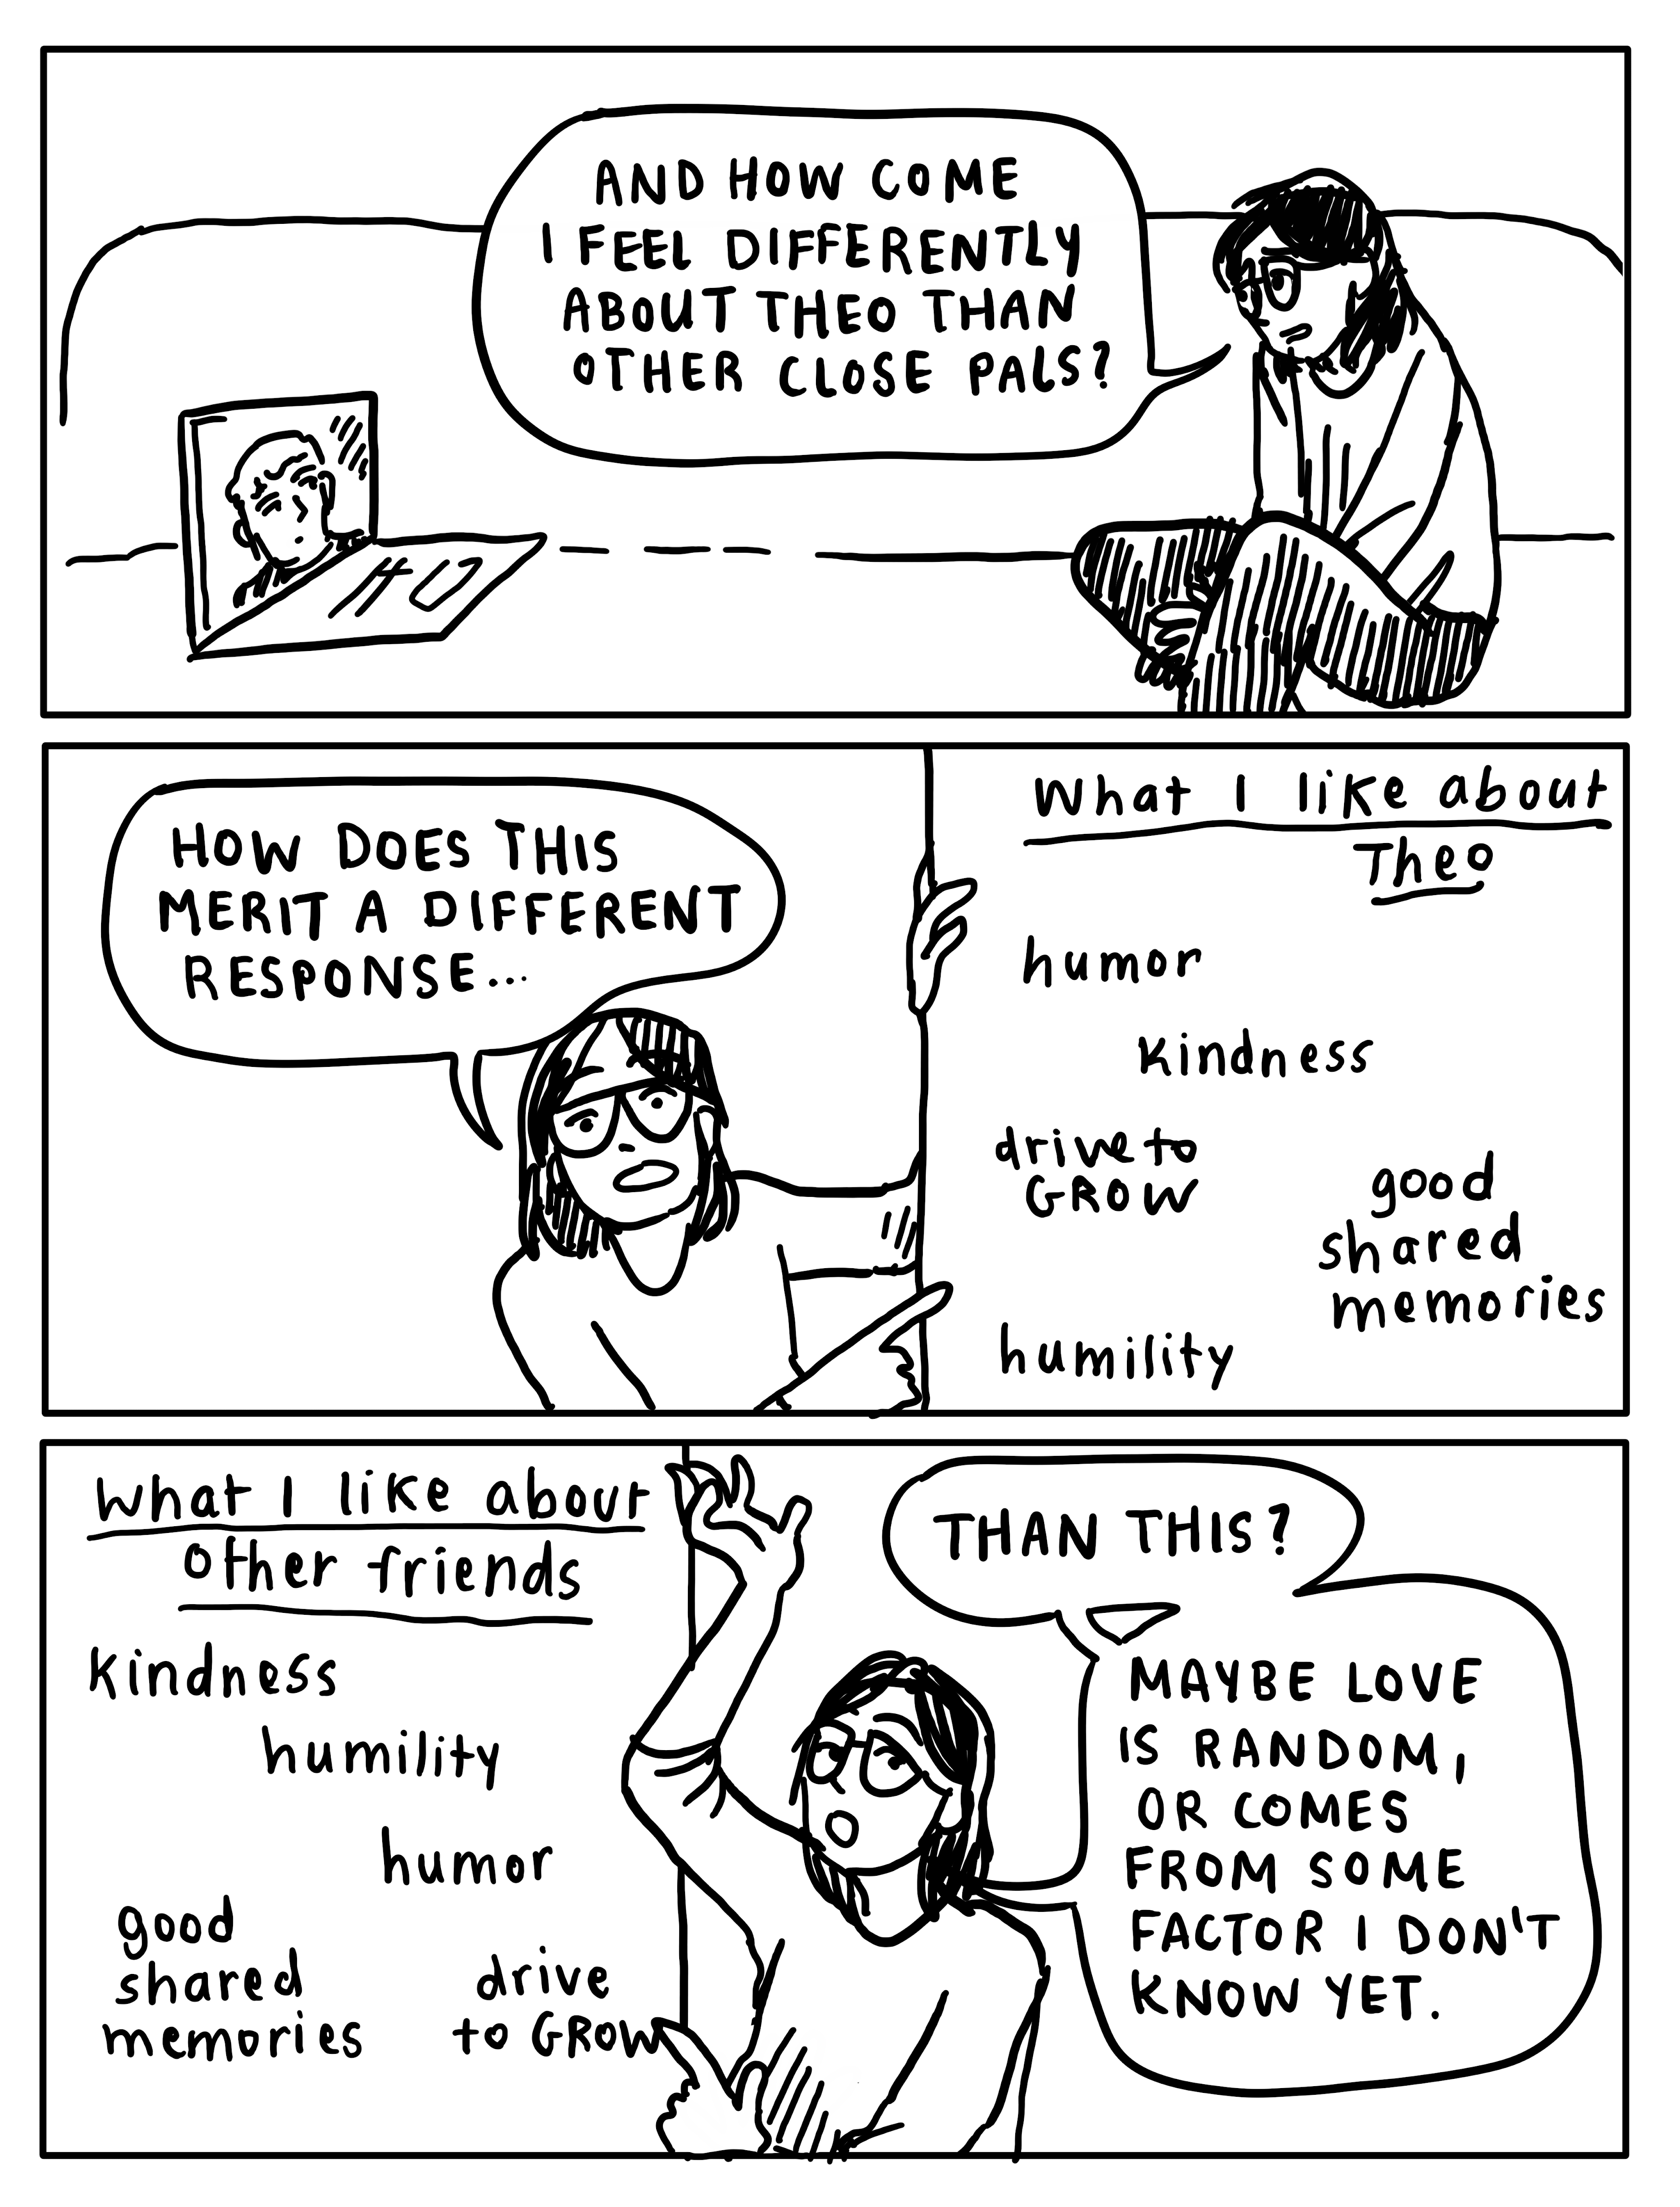 AND HOW COME
I FEEL DIFFERENTLY
ABOUT THEO THAN
OTHER CLOSE PALS?
HOW DOES THIS
MERIT A DIFFERENT
RESPONSE...
What I like about
Theo
humor
kindness
drive to
GROW
good
shared
memories
humility
What I like about
other friends
kindness
humility
humor
good
shared
memories
drive
to GROW
THAN THIS?
MAYBE LOVE
IS RANDOM,
OR COMES
FROM SOME
FACTOR I DON'T
KNOW YET.